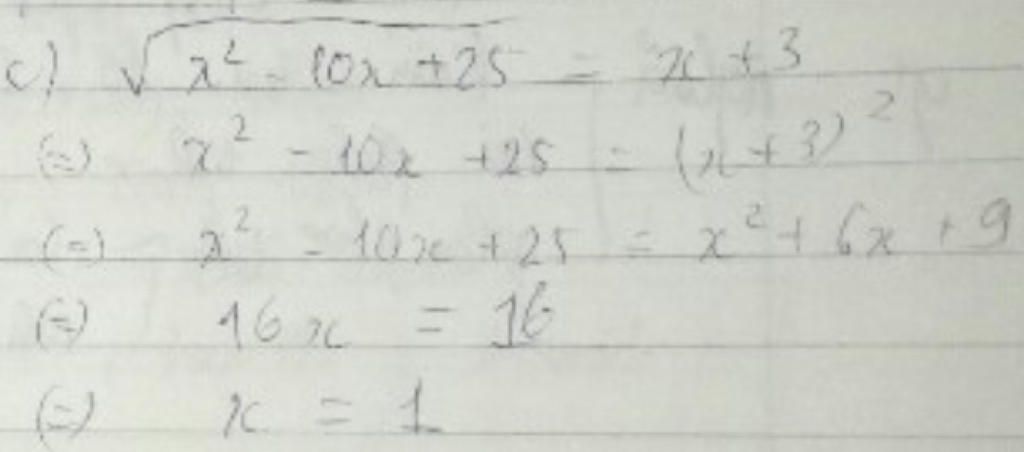 c) √(x² - 10x + 25) = x + 3
(=) x² - 10x + 25 = (x + 3)²
(=) x² - 10x + 25 = x² + 6x + 9
(=) 16x = 16
(=) x = 1